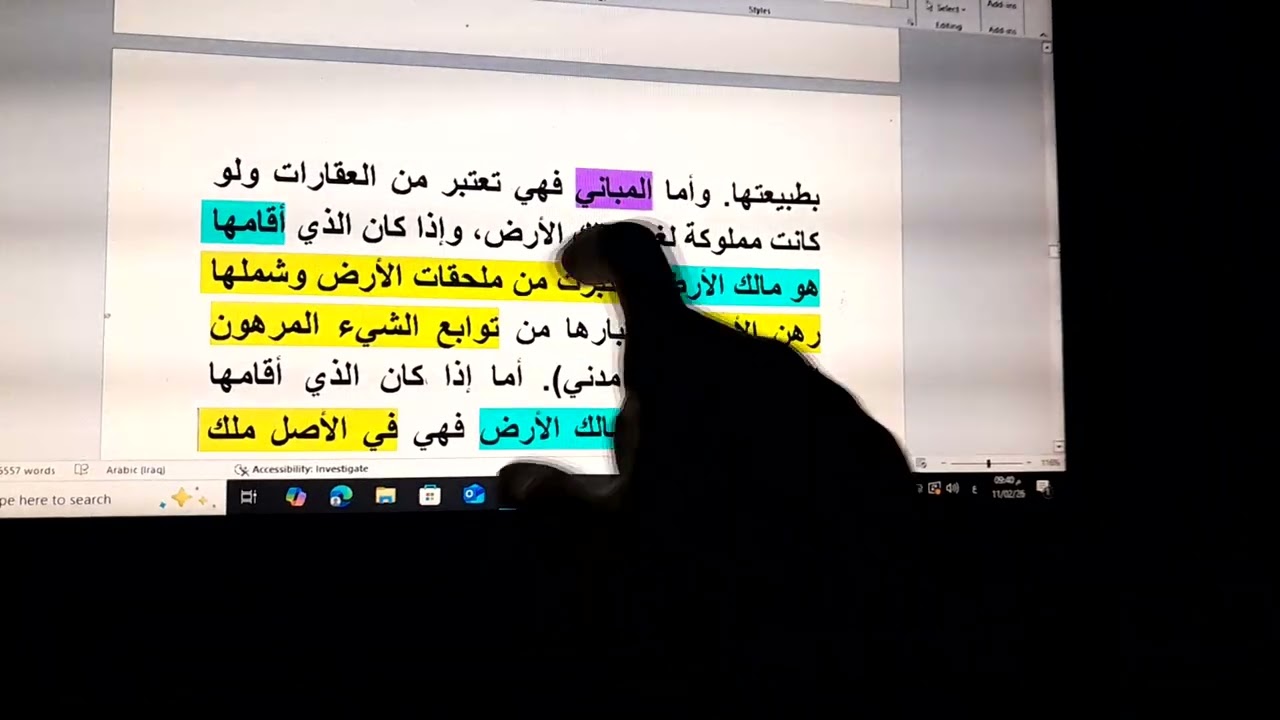 Styles
Select
Editing
Add-ins
Add-ins
بطبيعتها. وأما المباني فهي تعتبر من العقارات ولو
كانت مملوكة الأرض، وإذا كان الذي أقامها
هو مالك من ملحقات الأرض وشملها
رهن من توابع الشيء المرهون
مدني). أما إذا كان الذي أقامها
الأرض فهي في الأصل ملك
5557 words Arabic (Iraq) Accessibility: Investigate 116%
pe here to search ع 09:40 م
11/02/26